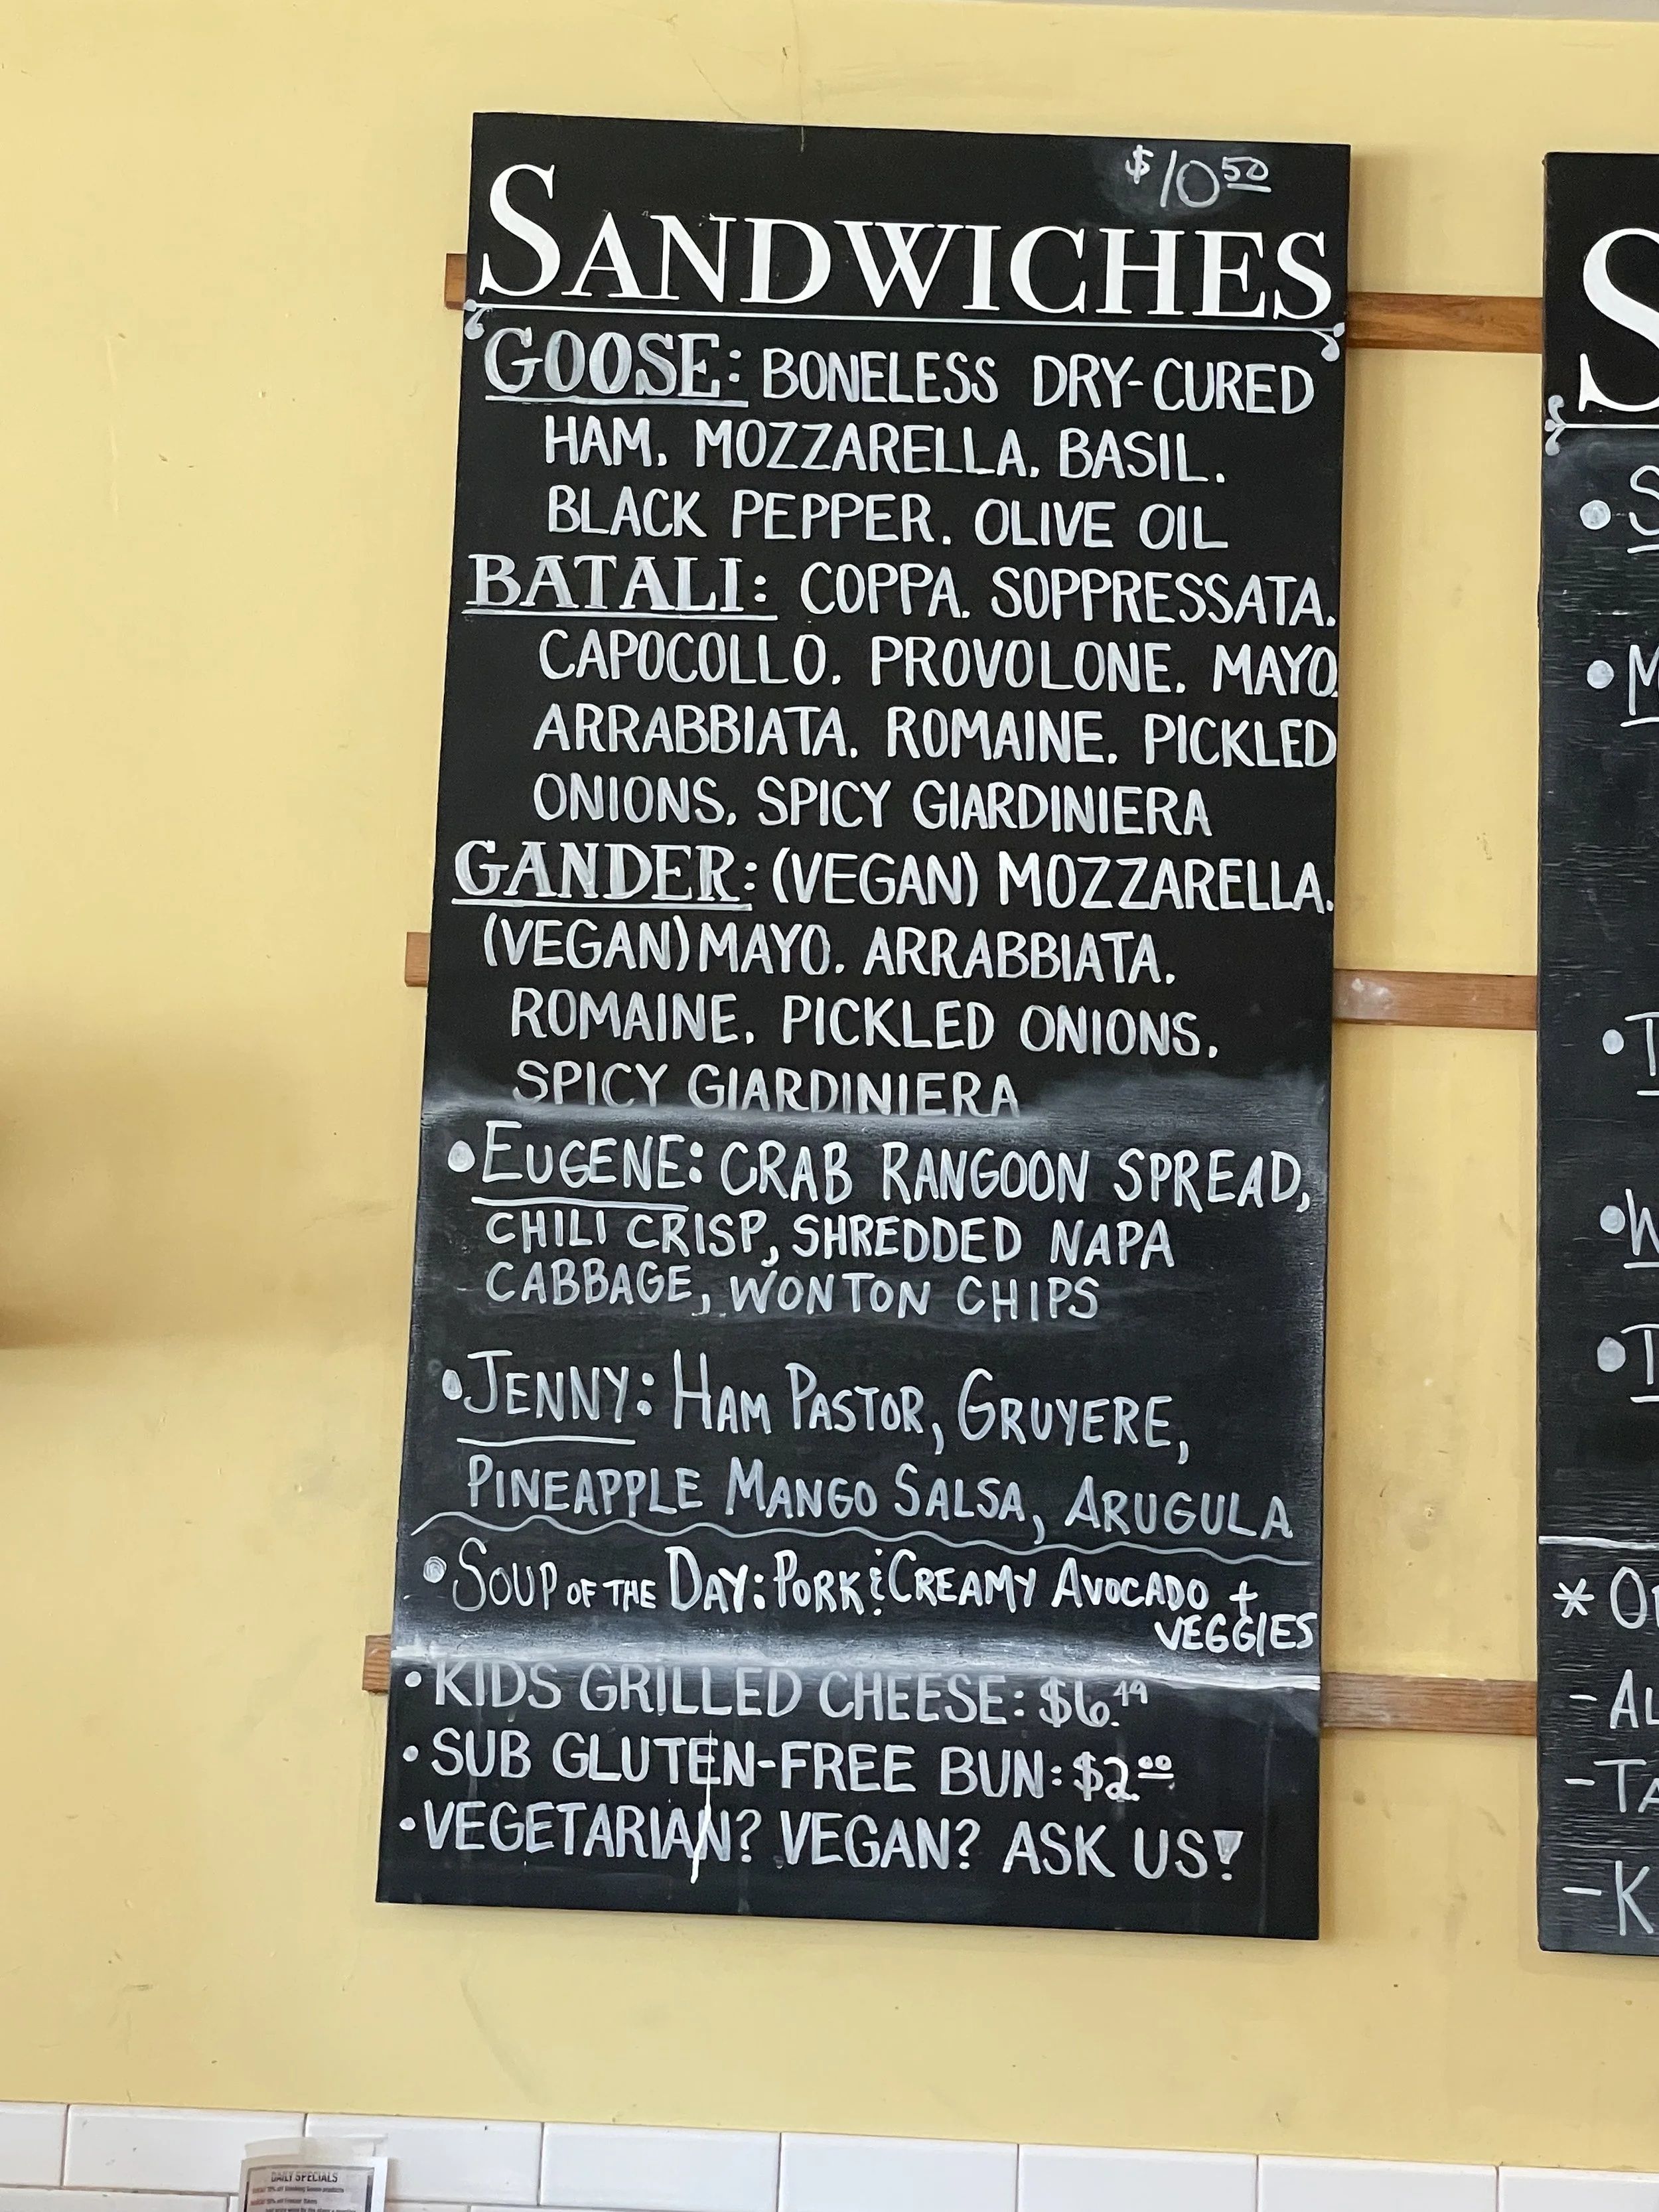 $10 50
SANDWICHES
GOOSE: BONELESS DRY-CURED
HAM. MOZZARELLA. BASIL.
BLACK PEPPER. OLIVE OIL
BATALI: COPPA. SOPPRESSATA.
CAPOCOLLO. PROVOLONE. MAYO.
ARRABBIATA. ROMAINE. PICKLED
ONIONS. SPICY GIARDINIERA
GANDER: (VEGAN) MOZZARELLA.
(VEGAN) MAYO. ARRABBIATA.
ROMAINE. PICKLED ONIONS.
SPICY GIARDINIERA
• EUGENE: CRAB RANGOON SPREAD,
CHILI CRISP, SHREDDED NAPA
CABBAGE, WONTON CHIPS
• JENNY: HAM PASTOR, GRUYERE,
PINEAPPLE MANGO SALSA, ARUGULA
• SOUP OF THE DAY: PORK & CREAMY AVOCADO +
VEGGIES
• KIDS GRILLED CHEESE: $6.49
• SUB GLUTEN-FREE BUN: $2.00
• VEGETARIAN? VEGAN? ASK US!
DAILY SPECIALS